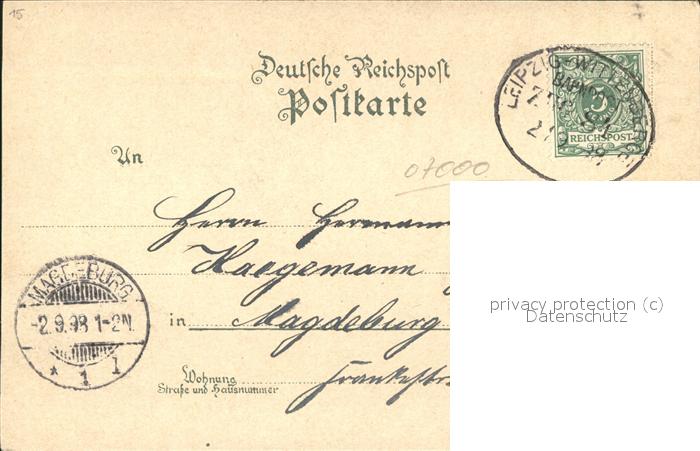 15
Deutsche Reichspost
Postkarte
LEIPZIG-WITTENBERGE
BAHNPOST
REICHSPOST
An
07000
Herrn Hermann
Kaegemann
MAGDEBURG.
-2.9.98 1-2N.
* 1 1
in Magdeburg
Wohnung
Straße und Hausnummer
Franksstr
privacy protection (c)
Datenschutz